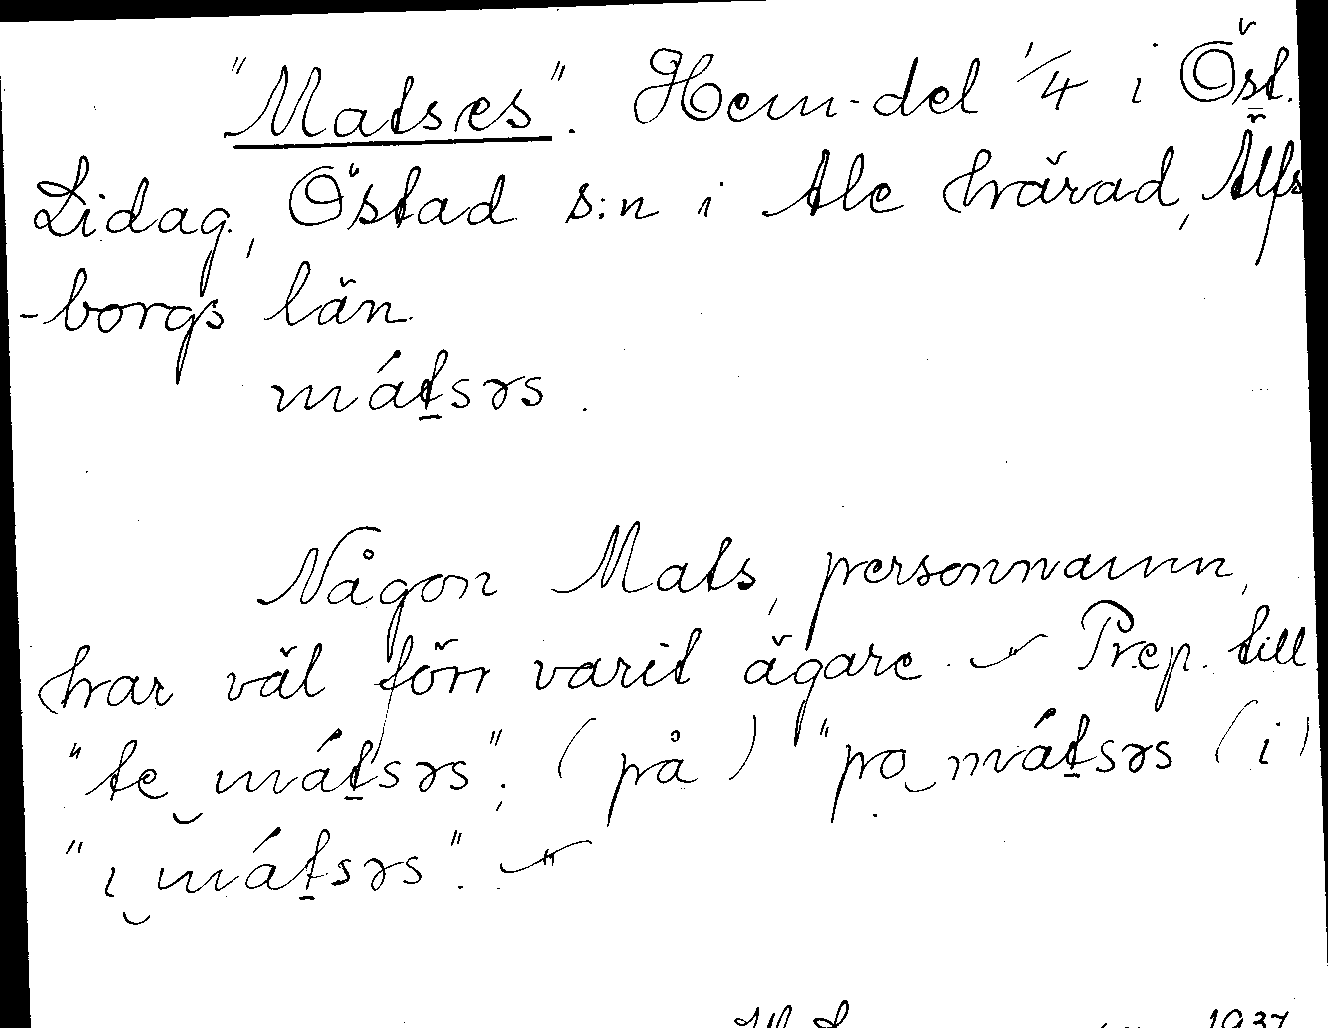 "Matses". Hem-del 1/4 i Öst.
Lidag., Östad s:n i Ale härad, Älfs
-borgs län.
mátsəs.
Någon Mats, personnamn,
har väl förr varit ägare. — " — Prep. till
"te mátsəs"; (på) "po mátsəs (i)
"i mátsəs". — " —
1937